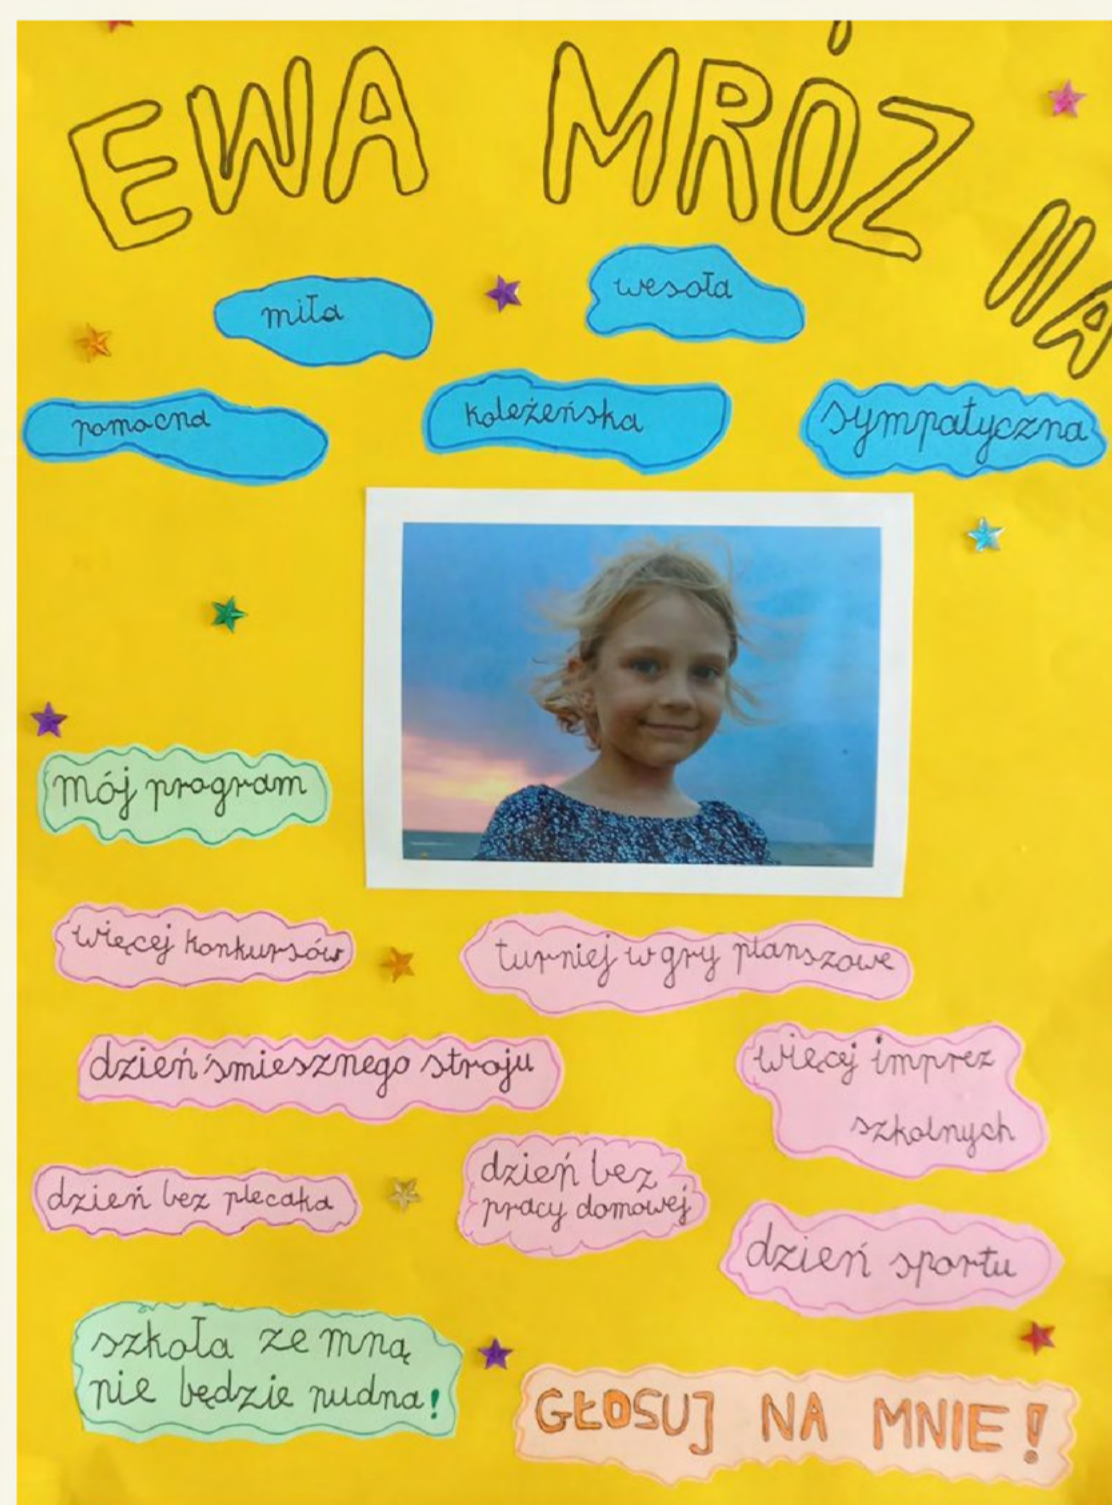 EWA MRÓZ
NA
miła
wesoła
pomocna
koleżeńska
sympatyczna
mój program
więcej konkursów
turniej w gry planszowe
dzień śmiesznego stroju
więcej imprez
szkolnych
dzień bez plecaka
dzień bez
pracy domowej
dzień sportu
szkoła ze mną
nie będzie nudna!
GŁOSUJ NA MNIE!